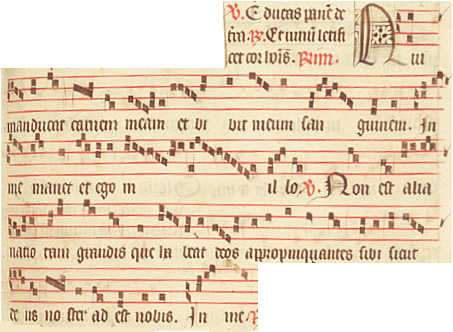 V. Educas pane de
tra R. Et uinu letifi
cet cor hois. Qui
manducat carnem meam et bi bit meum san guinem. In
me manet et ego in il lo. V. Non est alia
natio tam grandis que ha beat deos appropinquantes sibi sicut
de us no ster ad est nobis. In me